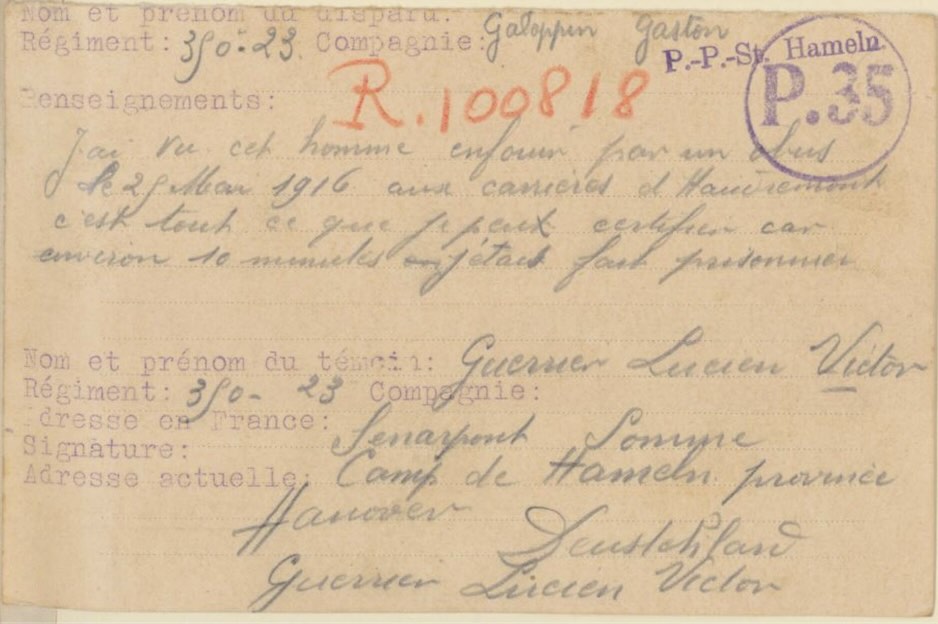 Nom et prénom du disparu: Galoppin Gaston
Régiment: 350-23. Compagnie:
P.-P.-St. Hameln
P.35
Renseignements: R.100818
J'ai vu cet homme enfouir par un obus
le 25 Mai 1916 aux carrières d'Haudremont
c'est tout ce que je peux certifier car
environ 10 minutes j'étais fait prisonnier
Nom et prénom du témoin: Guerrier Lucien Victor
Régiment: 350- 23 Compagnie:
dresse en France: Senarpont Somme
Signature:
Adresse actuelle: Camp de Hameln province
Hanover Deustchland
Guerrier Lucien Victor